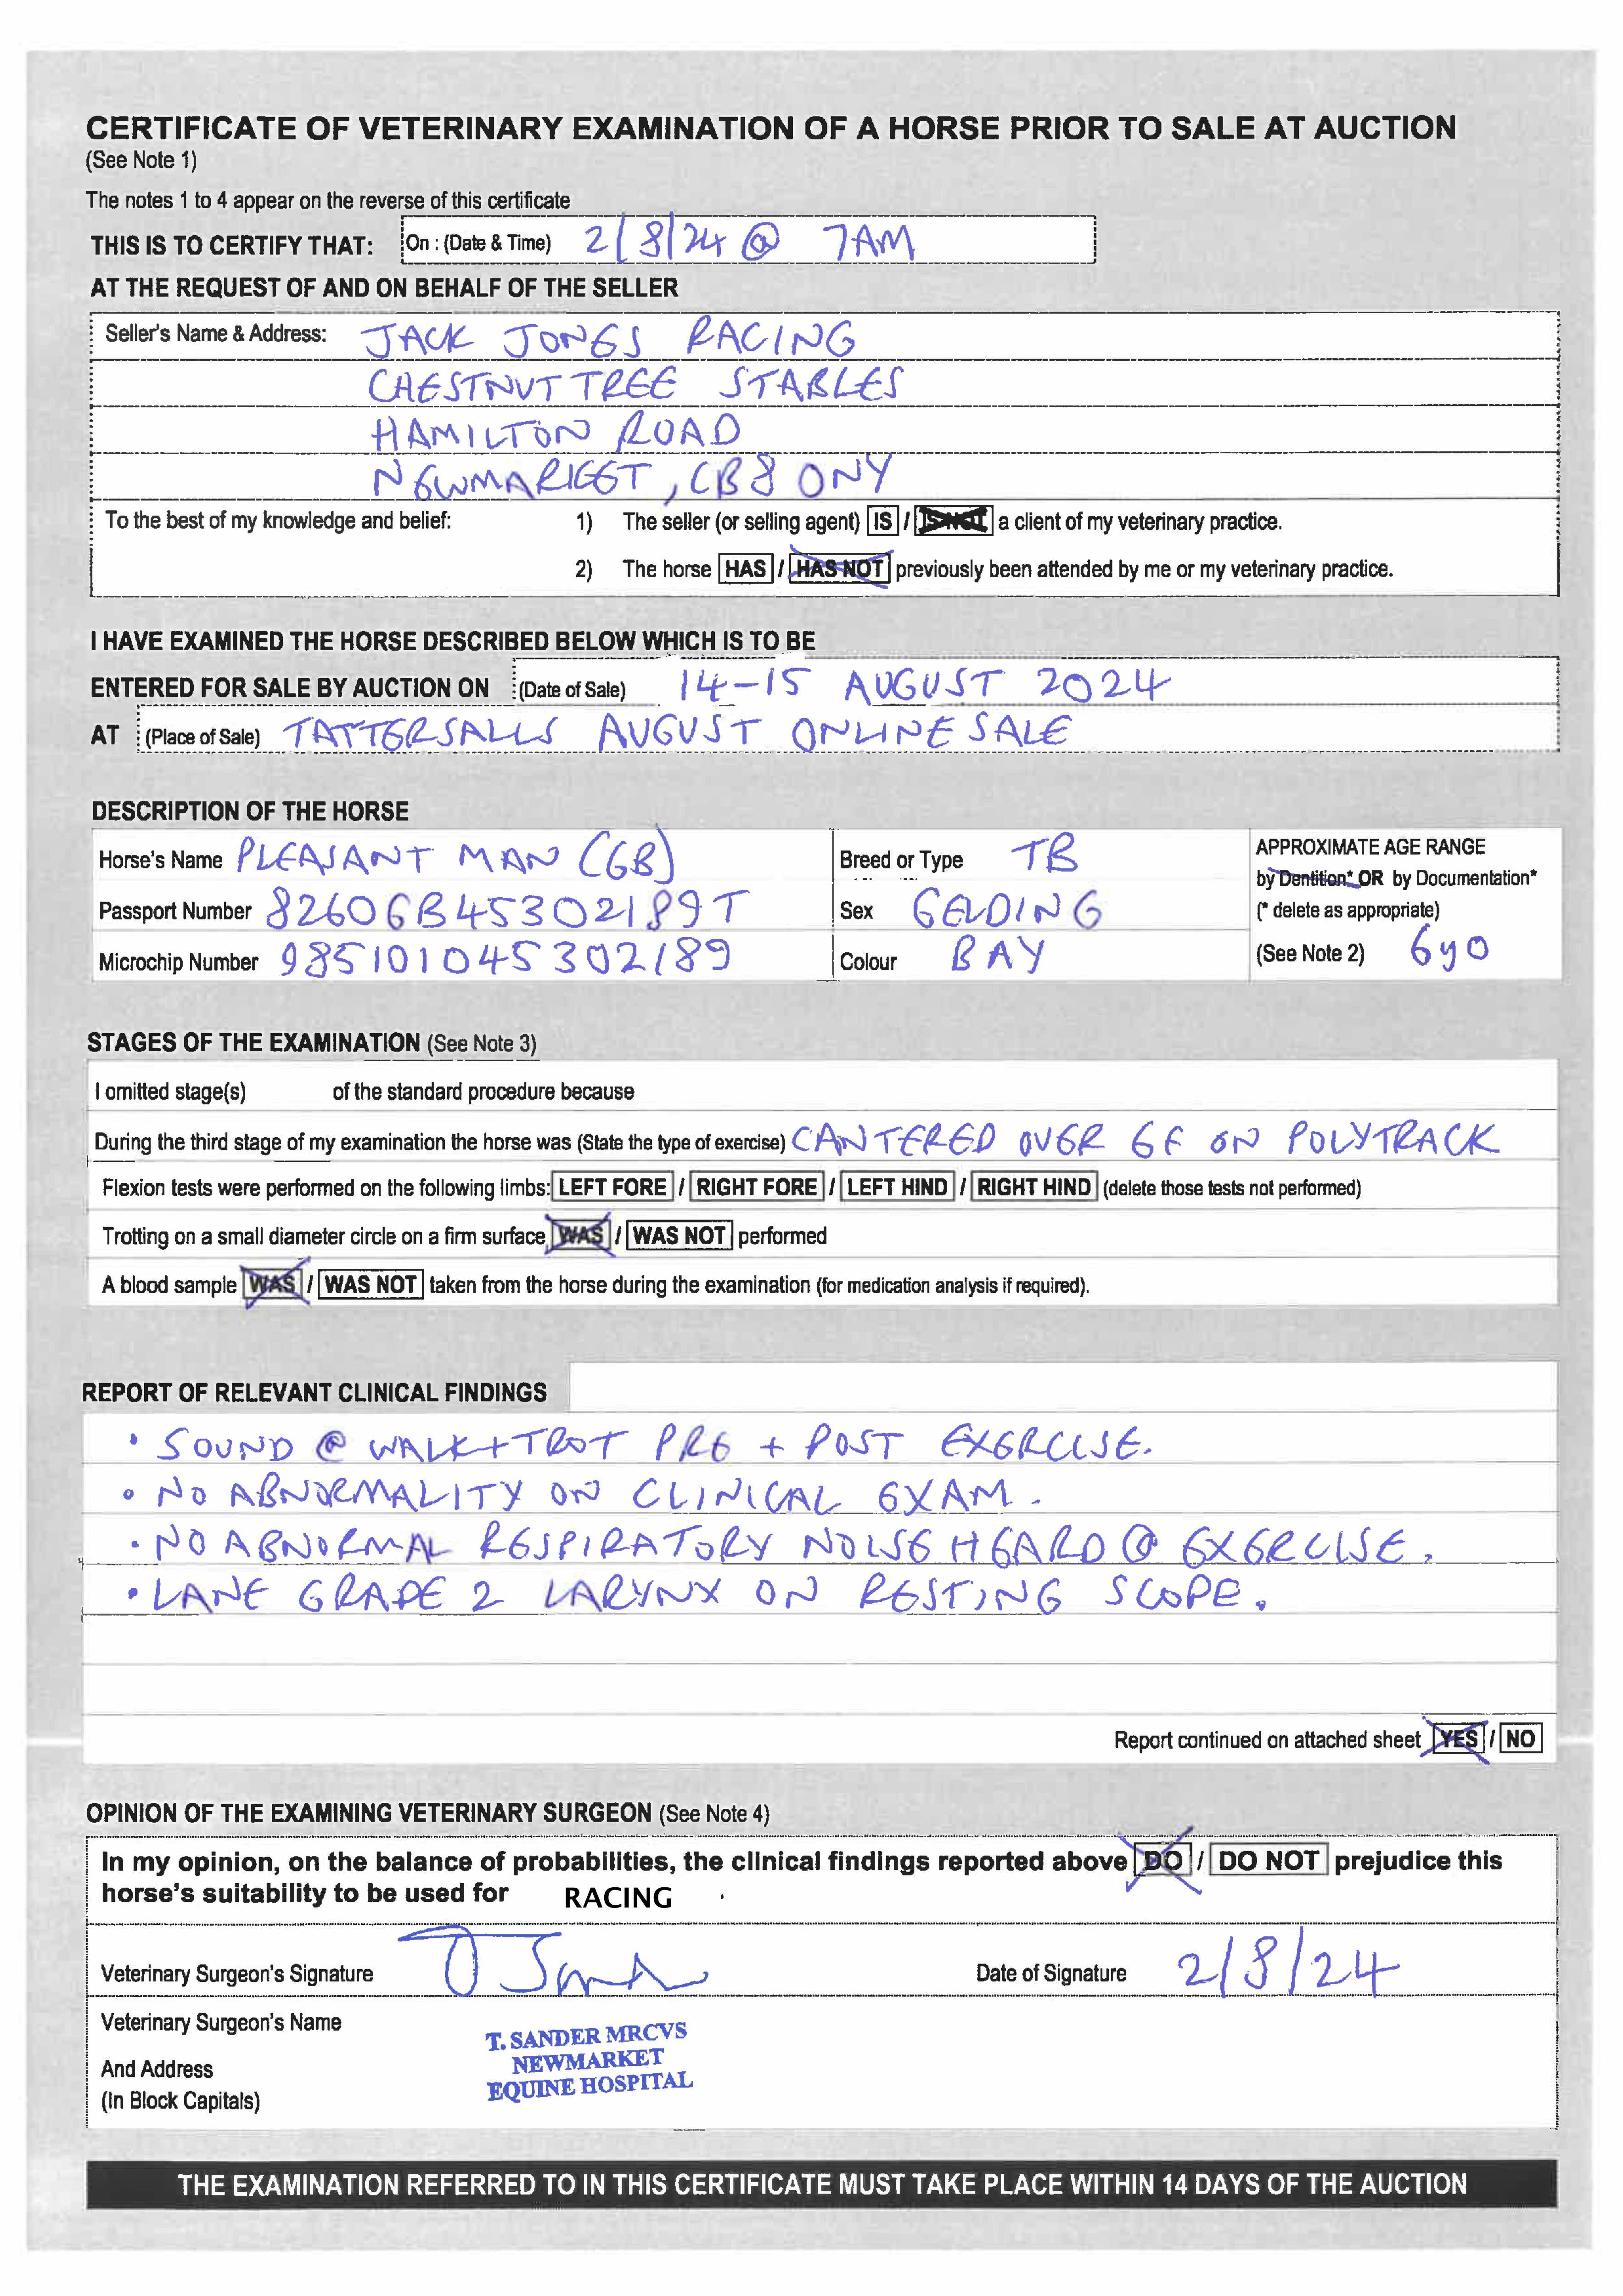 CERTIFICATE OF VETERINARY EXAMINATION OF A HORSE PRIOR TO SALE AT AUCTION
(See Note 1)
The notes 1 to 4 appear on the reverse of this certificate
THIS IS TO CERTIFY THAT: On : (Date & Time) 2/8/24 @ 7AM
AT THE REQUEST OF AND ON BEHALF OF THE SELLER
Seller's Name & Address: JACK JONES RACING
CHESTNUT TREE STABLES
HAMILTON ROAD
NEWMARKET, CB8 0NY
To the best of my knowledge and belief: 1) The seller (or selling agent) IS / IS NOT a client of my veterinary practice.
2) The horse HAS / HAS NOT previously been attended by me or my veterinary practice.
I HAVE EXAMINED THE HORSE DESCRIBED BELOW WHICH IS TO BE
ENTERED FOR SALE BY AUCTION ON (Date of Sale) 14-15 AUGUST 2024
AT (Place of Sale) TATTERSALLS AUGUST ONLINE SALE
DESCRIPTION OF THE HORSE
Horse's Name PLEASANT MAN (GB)
Passport Number 8260GB45302189T
Microchip Number 985101045302189
Breed or Type TB
Sex GELDING
Colour BAY
APPROXIMATE AGE RANGE
by Dentition* OR by Documentation*
(* delete as appropriate)
(See Note 2) 6yo
STAGES OF THE EXAMINATION (See Note 3)
I omitted stage(s) of the standard procedure because
During the third stage of my examination the horse was (State the type of exercise) CANTERED OVER 6F ON POLYTRACK
Flexion tests were performed on the following limbs: LEFT FORE / RIGHT FORE / LEFT HIND / RIGHT HIND (delete those tests not performed)
Trotting on a small diameter circle on a firm surface WAS / WAS NOT performed
A blood sample WAS / WAS NOT taken from the horse during the examination (for medication analysis if required).
REPORT OF RELEVANT CLINICAL FINDINGS
• SOUND @ WALK + TROT PRE + POST EXERCISE.
• NO ABNORMALITY ON CLINICAL EXAM.
• NO ABNORMAL RESPIRATORY NOISE HEARD @ EXERCISE.
• LANE GRADE 2 LARYNX ON RESTING SCOPE.
Report continued on attached sheet YES / NO
OPINION OF THE EXAMINING VETERINARY SURGEON (See Note 4)
In my opinion, on the balance of probabilities, the clinical findings reported above DO / DO NOT prejudice this
horse's suitability to be used for RACING .
Veterinary Surgeon's Signature
Date of Signature 2/8/24
Veterinary Surgeon's Name
And Address
(In Block Capitals)
T. SANDER MRCVS
NEWMARKET
EQUINE HOSPITAL
THE EXAMINATION REFERRED TO IN THIS CERTIFICATE MUST TAKE PLACE WITHIN 14 DAYS OF THE AUCTION